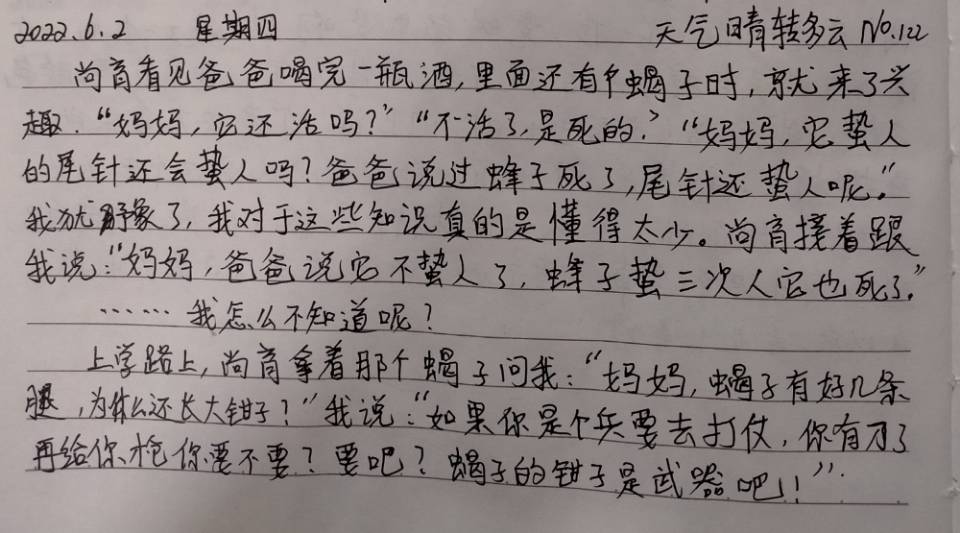 2022.6.2 星期四 天气晴转多云 No.122
尚育看见爸爸喝完一瓶酒,里面还有个蝎子时,就来了兴
趣.“妈妈,它还活吗?”“不活了,是死的.”“妈妈,它蛰人
的尾针还会蛰人吗?爸爸说过蜂子死了,尾针还蛰人呢.”
我犹豫了,我对于这些知识真的是懂得太少。尚育接着跟
我说:“妈妈,爸爸说它不蛰人了,蜂子蛰三次人它也死了.”
……我怎么不知道呢?
上学路上,尚育拿着那个蝎子问我:“妈妈,蝎子有好几条
腿,为什么还长大钳子?”我说:“如果你是个兵要去打仗,你有刀了
再给你枪你要不要?要吧?蝎子的钳子是武器吧!”